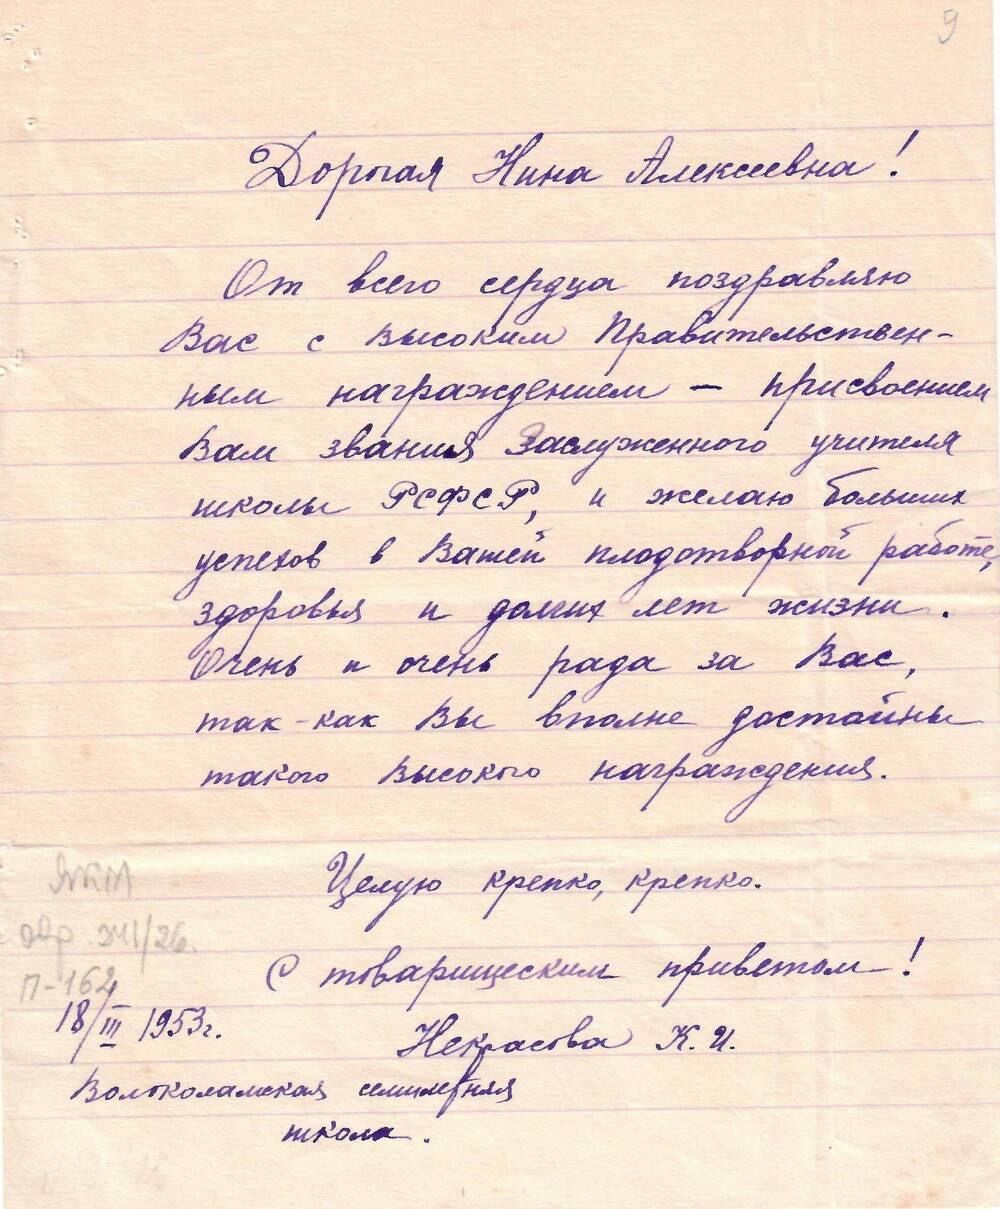 9
Дорогая Нина Алексеевна!
От всего сердца поздравляю
Вас с высоким Правительствен-
ным награждением — присвоением
Вам звания Заслуженного учителя
школы РСФСР, и желаю больших
успехов в Вашей плодотворной работе,
здоровья и долгих лет жизни.
Очень и очень рада за Вас,
так-как Вы вполне достойны
такого высокого награждения.
Целую крепко, крепко.
С товарищеским приветом!
П-162
18/III 1953г.
Некрасова К.И.
Волоколамская семилетняя
школа.